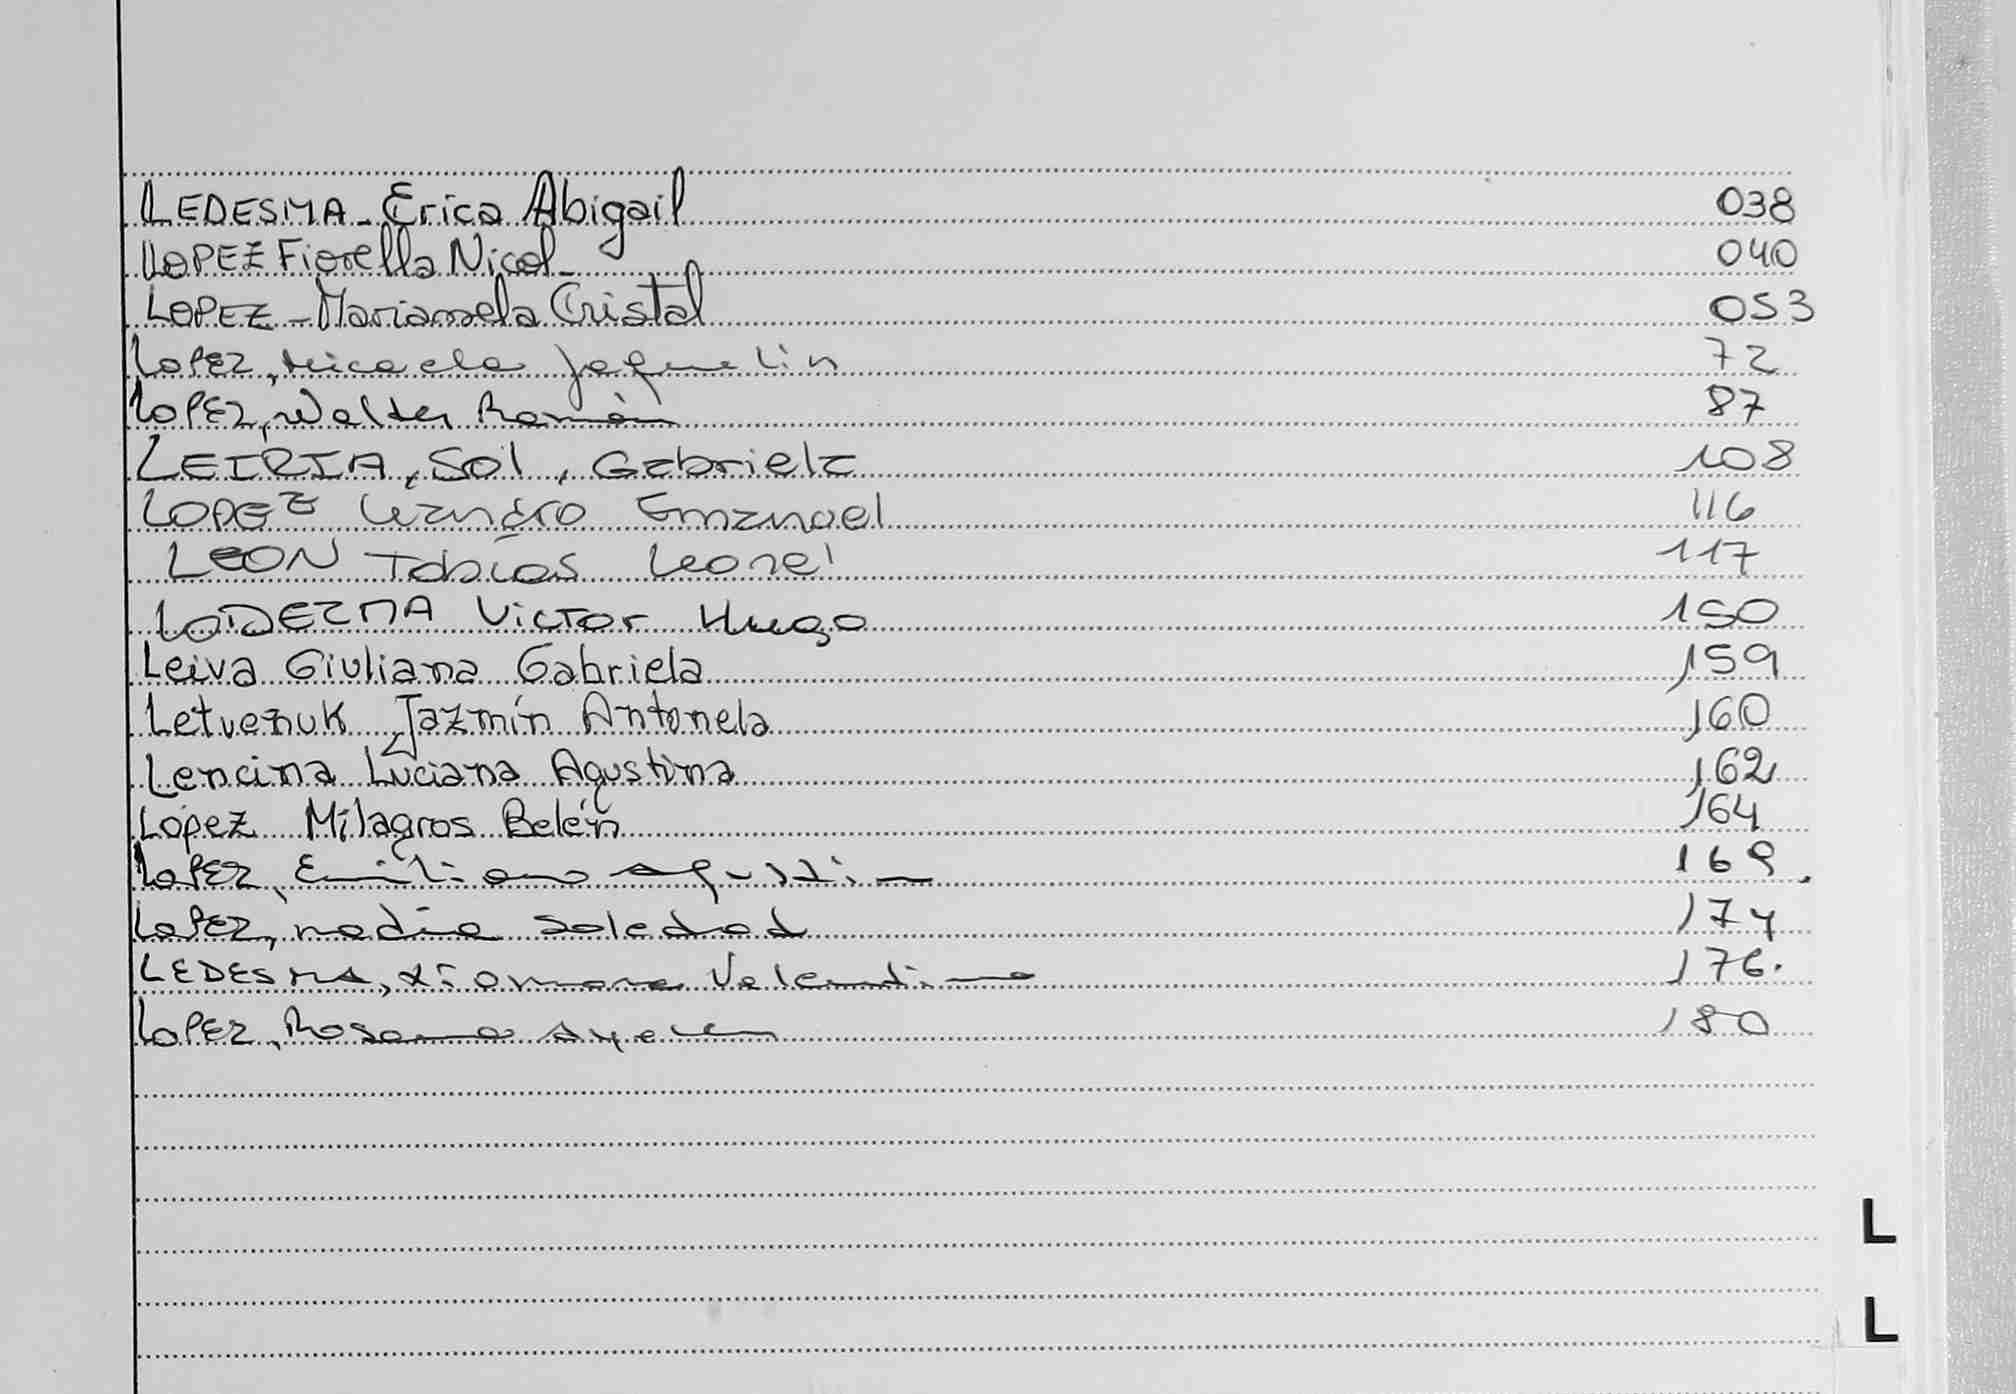 LEDESMA - Erica Abigail 038
LOPEZ Fiorella Nicol - 040
LOPEZ - Mariansela Cristal 053
LOPEZ, Micaela Jaquelin 72
LOPEZ, Walter Román 87
LEIRIA, Sol, Gabriela 108
LOPEZ Leandro Emanuel 116
LEON Tobias Leonel 117
Victor Hugo 150
Leiva Giuliana Gabriela 159
Jazmín Antonela 160
Lencina Luciana Agustina 162
López Milagros Belén 164
LOPEZ, Emiliano Agustin 169.
LOPEZ, nadia Soledad 174
LEDESMA, Xiomara Valentina 176.
LOPEZ, Rosana Ayelen 180
L
L